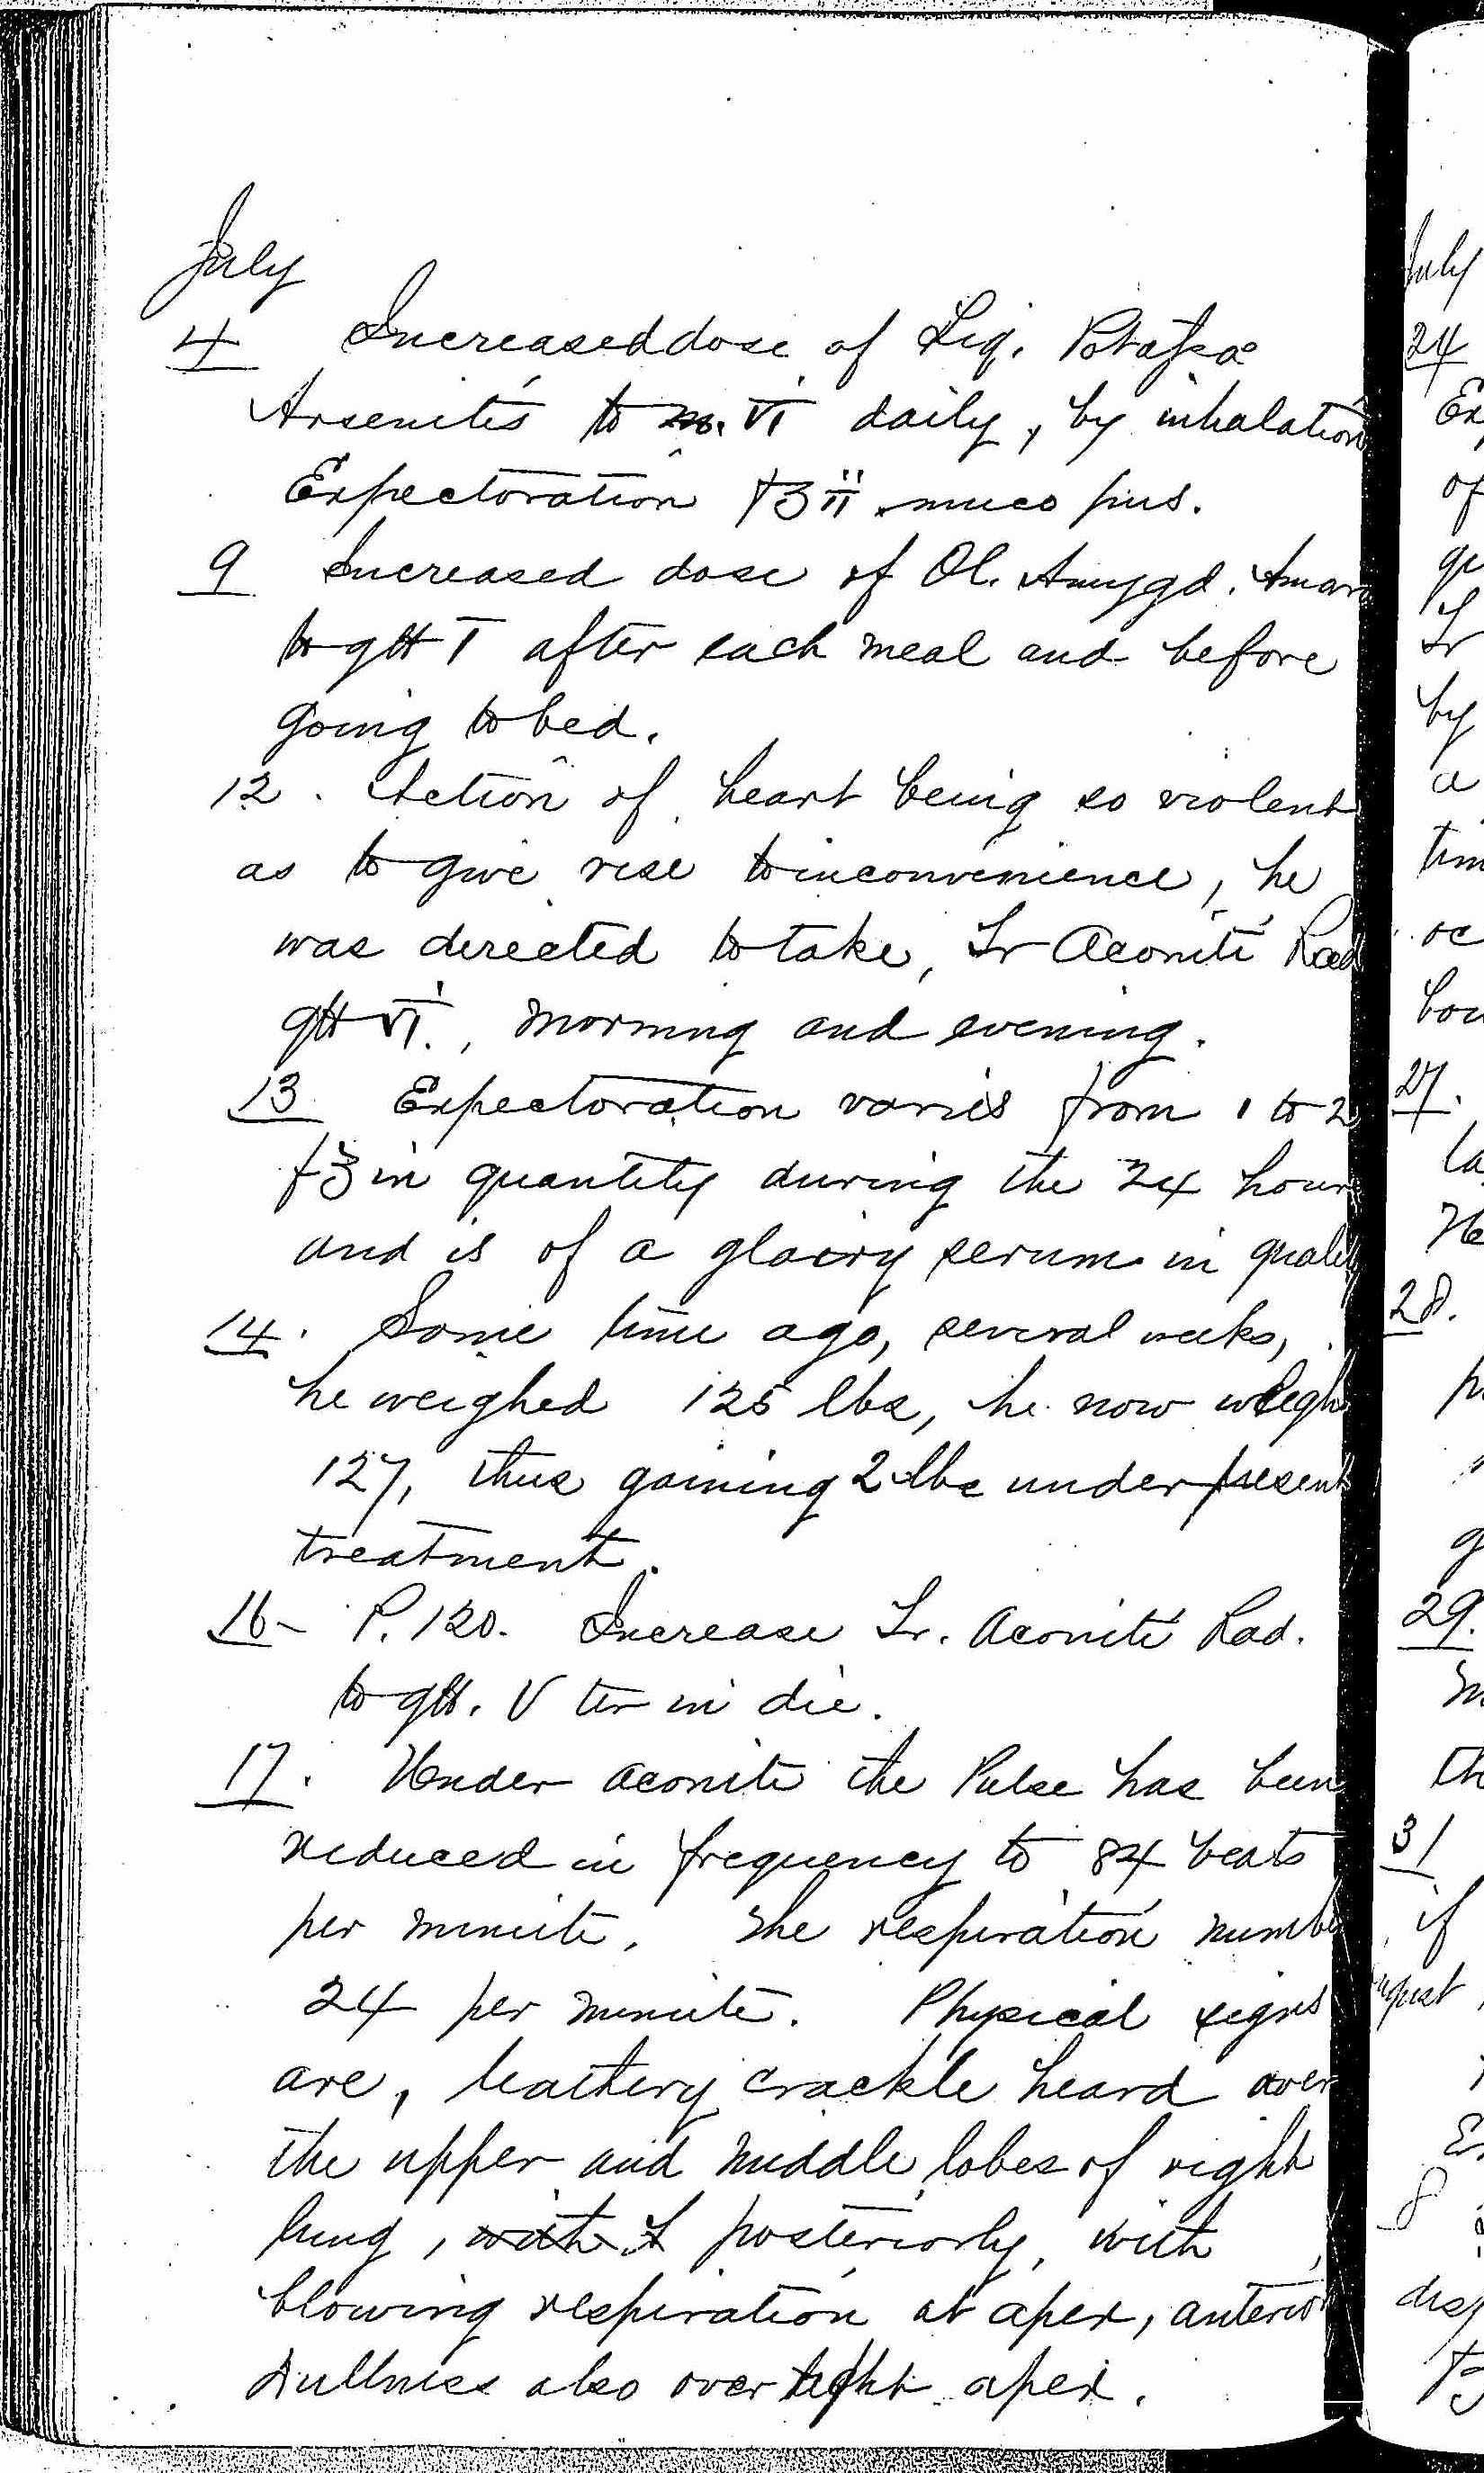 July
4 Increased dose of Liq. Potassæ
Arsenitis to m. VI daily, by inhalation
Expectoration fʒii muco pus.
9 Increased dose of Ol. Amygd. Amar
to gtt I after each meal and before
going to bed.
12. Action of heart being so violent
as to give rise to inconvenience, he
was directed to take, Tr Aconiti Rad
gtt VI., morning and evening.
13 Expectoration varies from 1 to 2
f℥ in quantity during the 24 hours
and is of a glairy serum in quality
14. Some time ago, several weeks,
he weighed 125 lbs, he now weighs
127, thus gaining 2 lbs under present
treatment.
16 - P. 120. Increase Tr. Aconiti Rad.
to gtt. V ter in die.
17. Under aconite the Pulse has been
reduced in frequency to 84 beats
per minute. The respiration number
24 per minute. Physical signs
are, leathery crackle heard over
the upper and middle lobes of right
lung, with posteriorly, with
blowing respiration at apex, anterior
dullness also over right apex.
July
24
of
by
a
27.
28.
29.
31
if
8